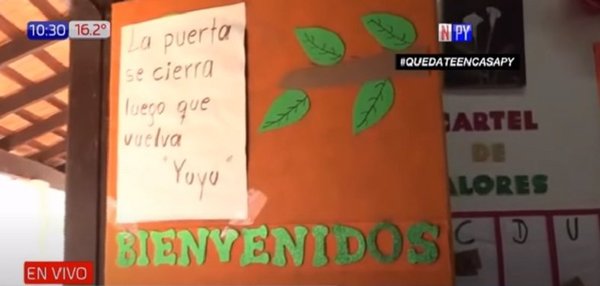 10:30 16.2°
NPY
#QUEDATEENCASAPY
La puerta
se cierra
luego que
vuelva
"Yuyu"
BIENVENIDOS
CARTEL
DE
ALORES
C D U
EN VIVO